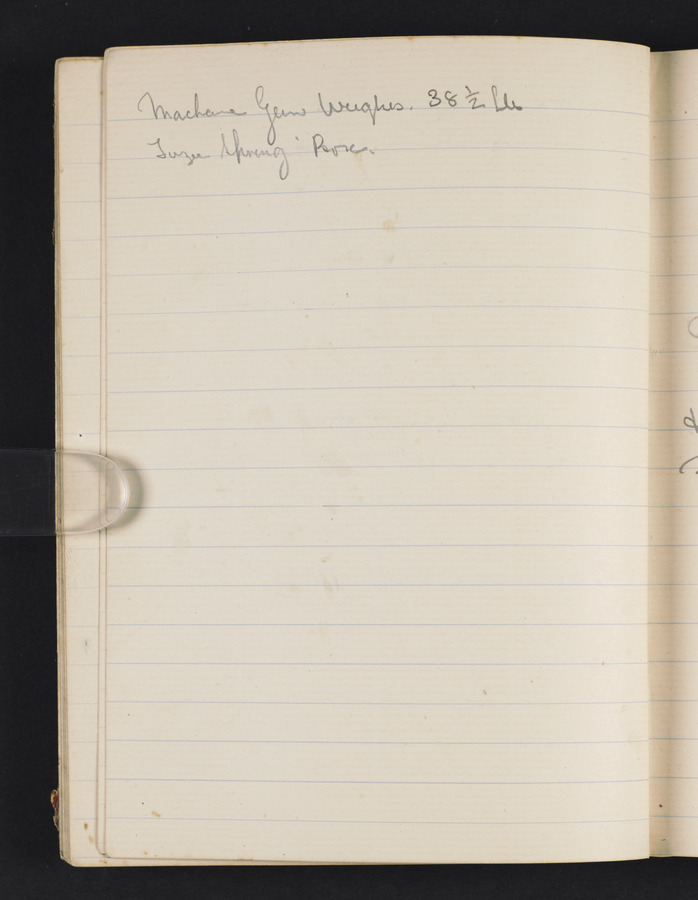 Machine Gun Weighes. 38 ½ lbs
Fuzee Spring Box.